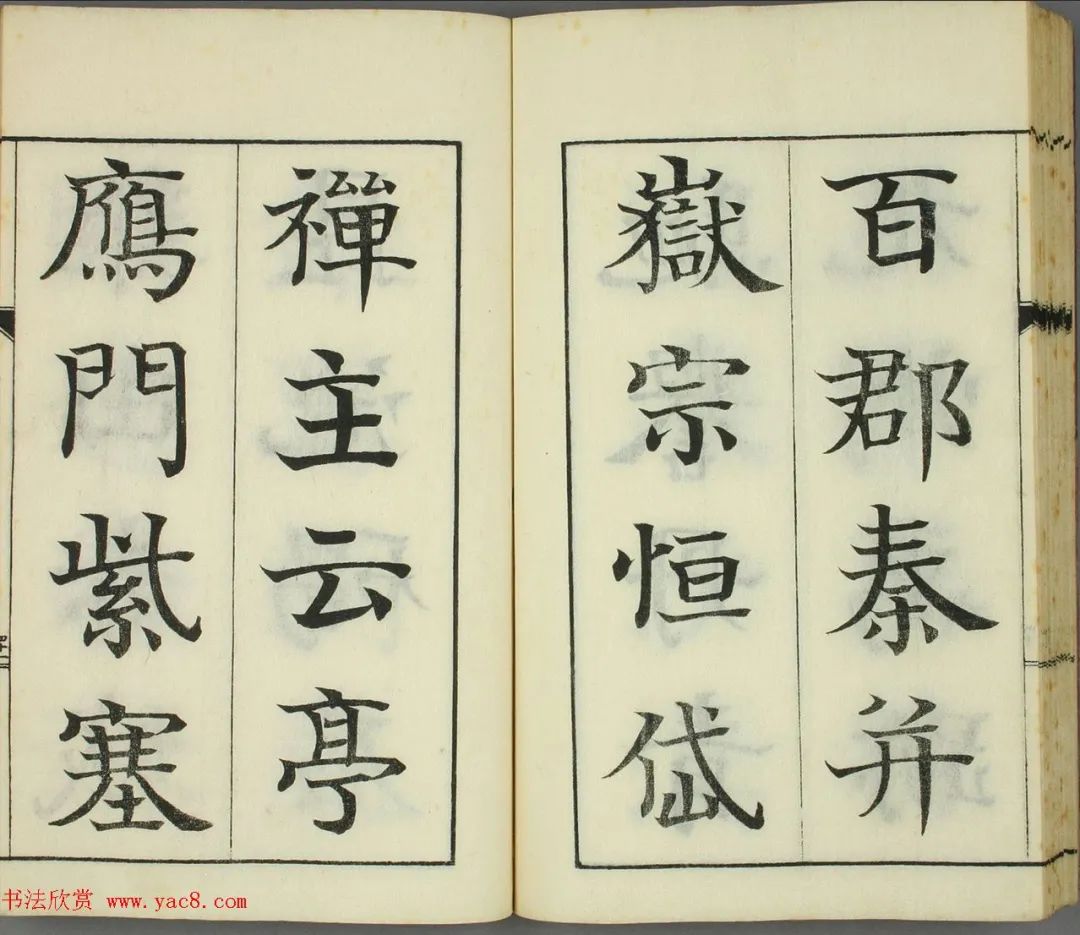 百郡秦并
嶽宗恒岱
禪主云亭
鴈門紫塞
书法欣赏 www.yac8.com